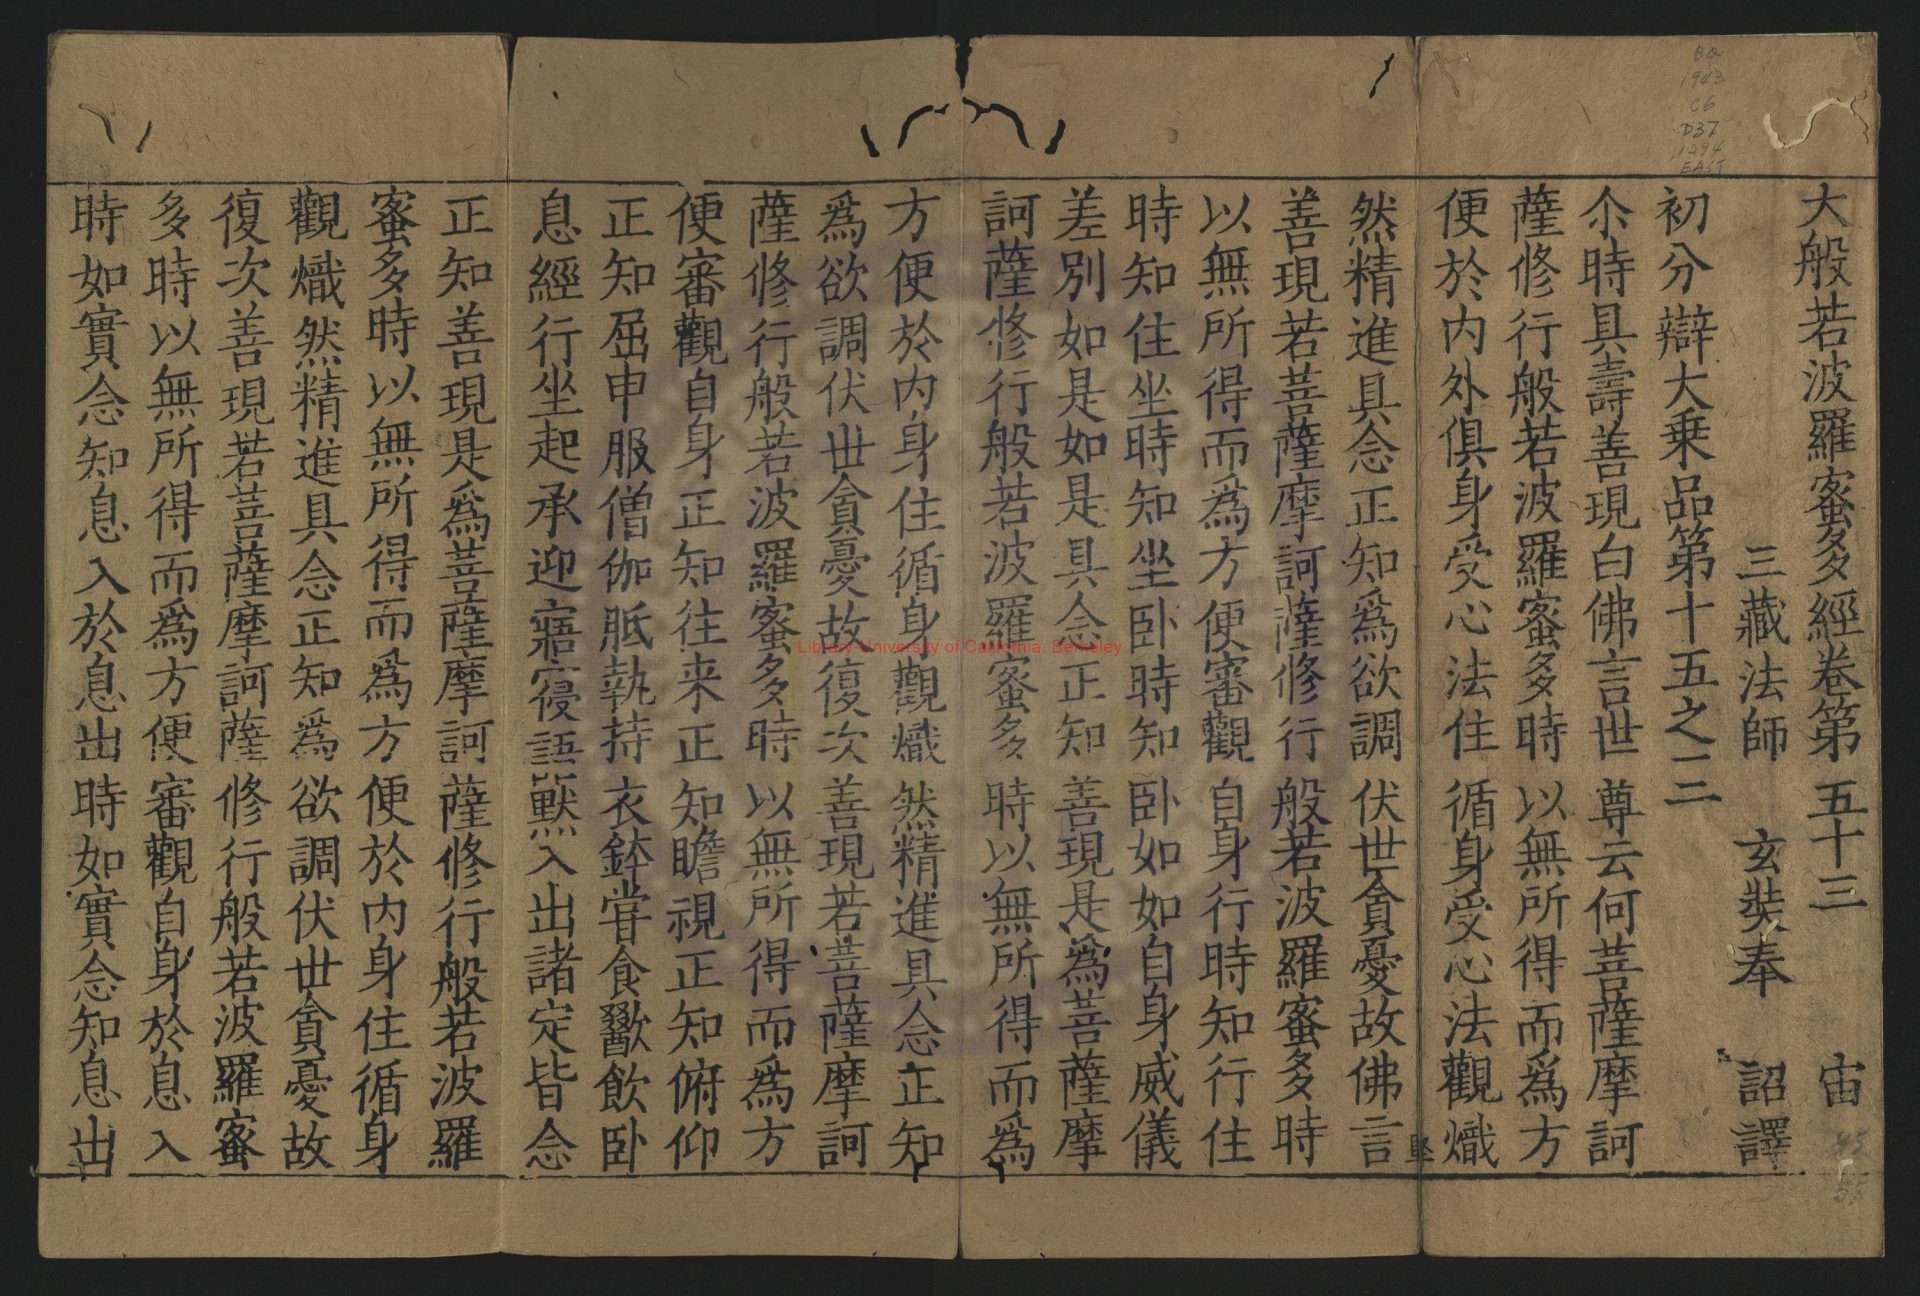 大般若波羅蜜多經卷第五十三 宙
三藏法師 玄奘奉 詔譯
初分辯大乗品第十五之三
尒時具壽善現白佛言世尊云何菩薩摩訶
薩修行般若波羅蜜多時以無所得而為方
便於内外俱身受心法住循身受心法觀熾
然精進具念正知為欲調伏世貪憂故佛言
善現若菩薩摩訶薩修行般若波羅蜜多時
以無所得而為方便審觀自身行時知行住
時知住坐時知坐卧時知卧如如自身威儀
差別如是如是具念正知善現是為菩薩摩
訶薩修行般若波羅蜜多時以無所得而為
方便於内身住循身觀熾然精進具念正知
為欲調伏世貪憂故復次善現若菩薩摩訶
薩修行般若波羅蜜多時以無所得而為方
便審觀自身正知往来正知瞻視正知俯仰
正知屈申服僧伽胝執持衣鉢甞食歠飲卧
息經行坐起承迎寤寢語黙入出諸定皆念
正知善現是為菩薩摩訶薩修行般若波羅
蜜多時以無所得而為方便於内身住循身
觀熾然精進具念正知為欲調伏世貪憂故
復次善現若菩薩摩訶薩修行般若波羅蜜
多時以無所得而為方便審觀自身於息入
時如實念知息入於息出時如實念知息出
BQ
1943
C6
D37
1294
EAST
Library-University of California, Berkeley